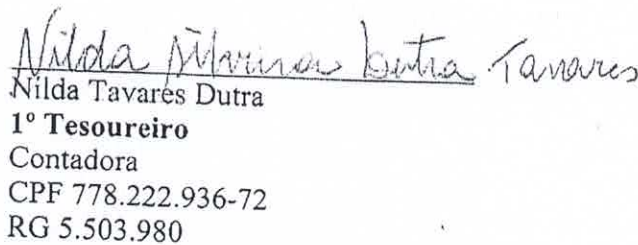 Nilda Silveira Dutra Tavares
Nilda Tavares Dutra
1º Tesoureiro
Contadora
CPF 778.222.936-72
RG 5.503.980